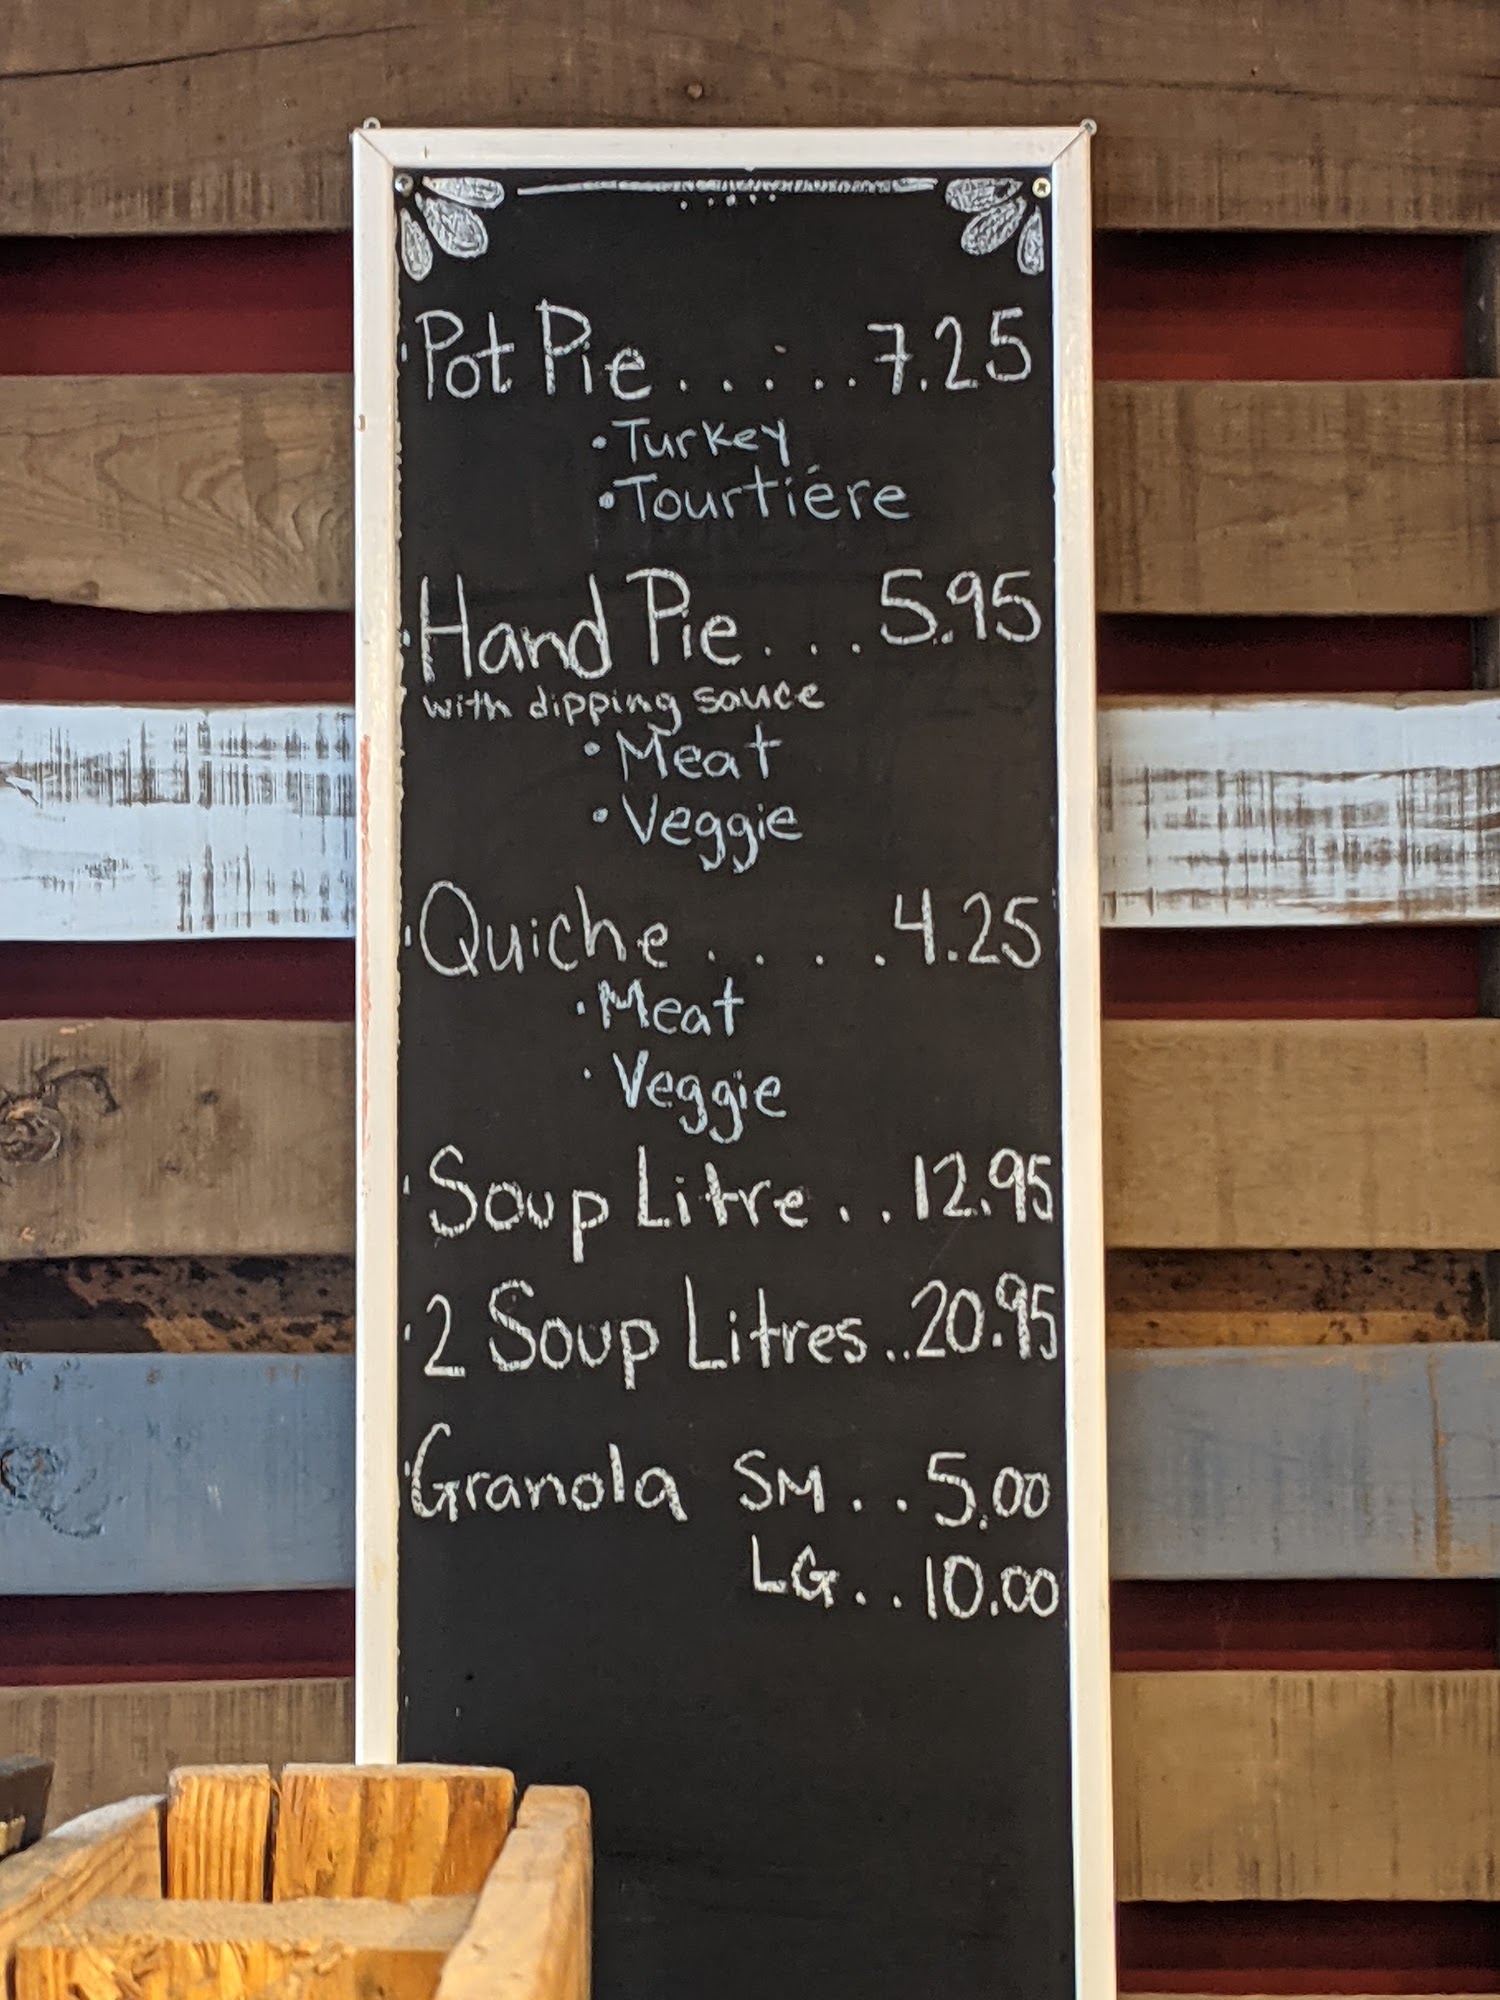 Pot Pie.......7.25
•Turkey
•Tourtiére
Hand Pie....5.95
with dipping sauce
•Meat
•Veggie
Quiche.....4.25
•Meat
•Veggie
Soup Litre..12.95
2 Soup Litres..20.95
Granola SM..5.00
LG..10.00